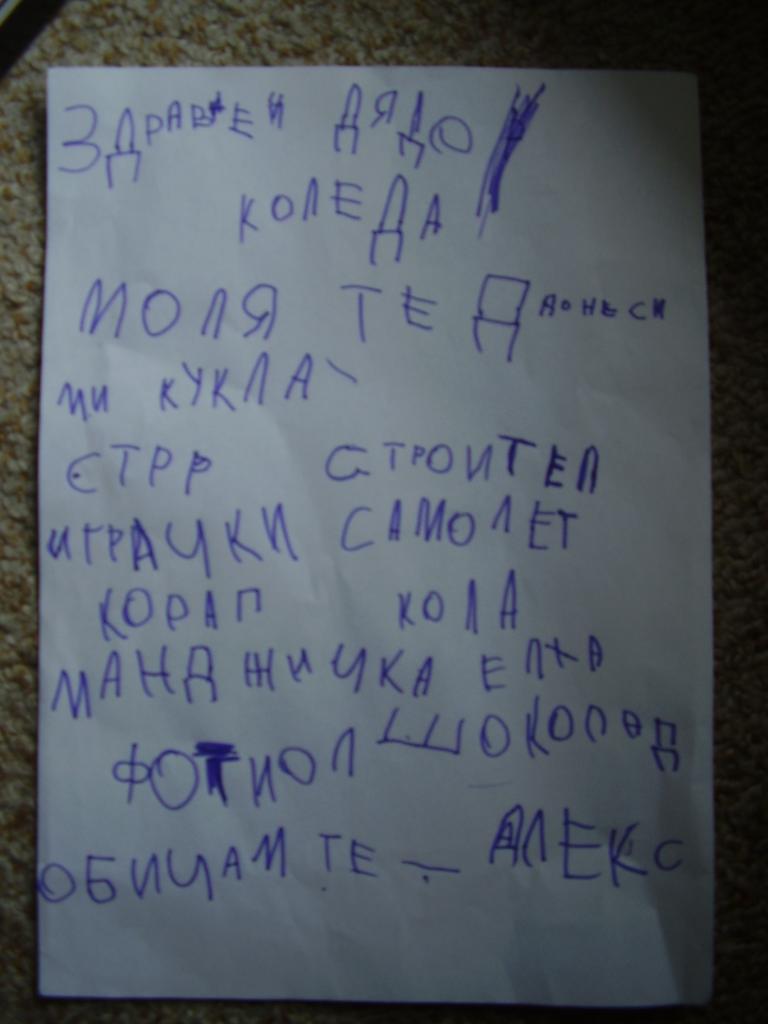 ЗДРАВЕЙ ДЯДО
КОЛЕДА
МОЛЯ ТЕ ДДОНЕСИ
МИ КУКЛА
СТРР СТРОИТЕЛ
ИГРАЧКИ САМОЛЕТ
КОРАП КОЛА
МАНДЖИЧКА ЕЛХА
ФОТИОЛ ШОКОЛАД
ОБИЧАМ ТЕ – АЛЕКС